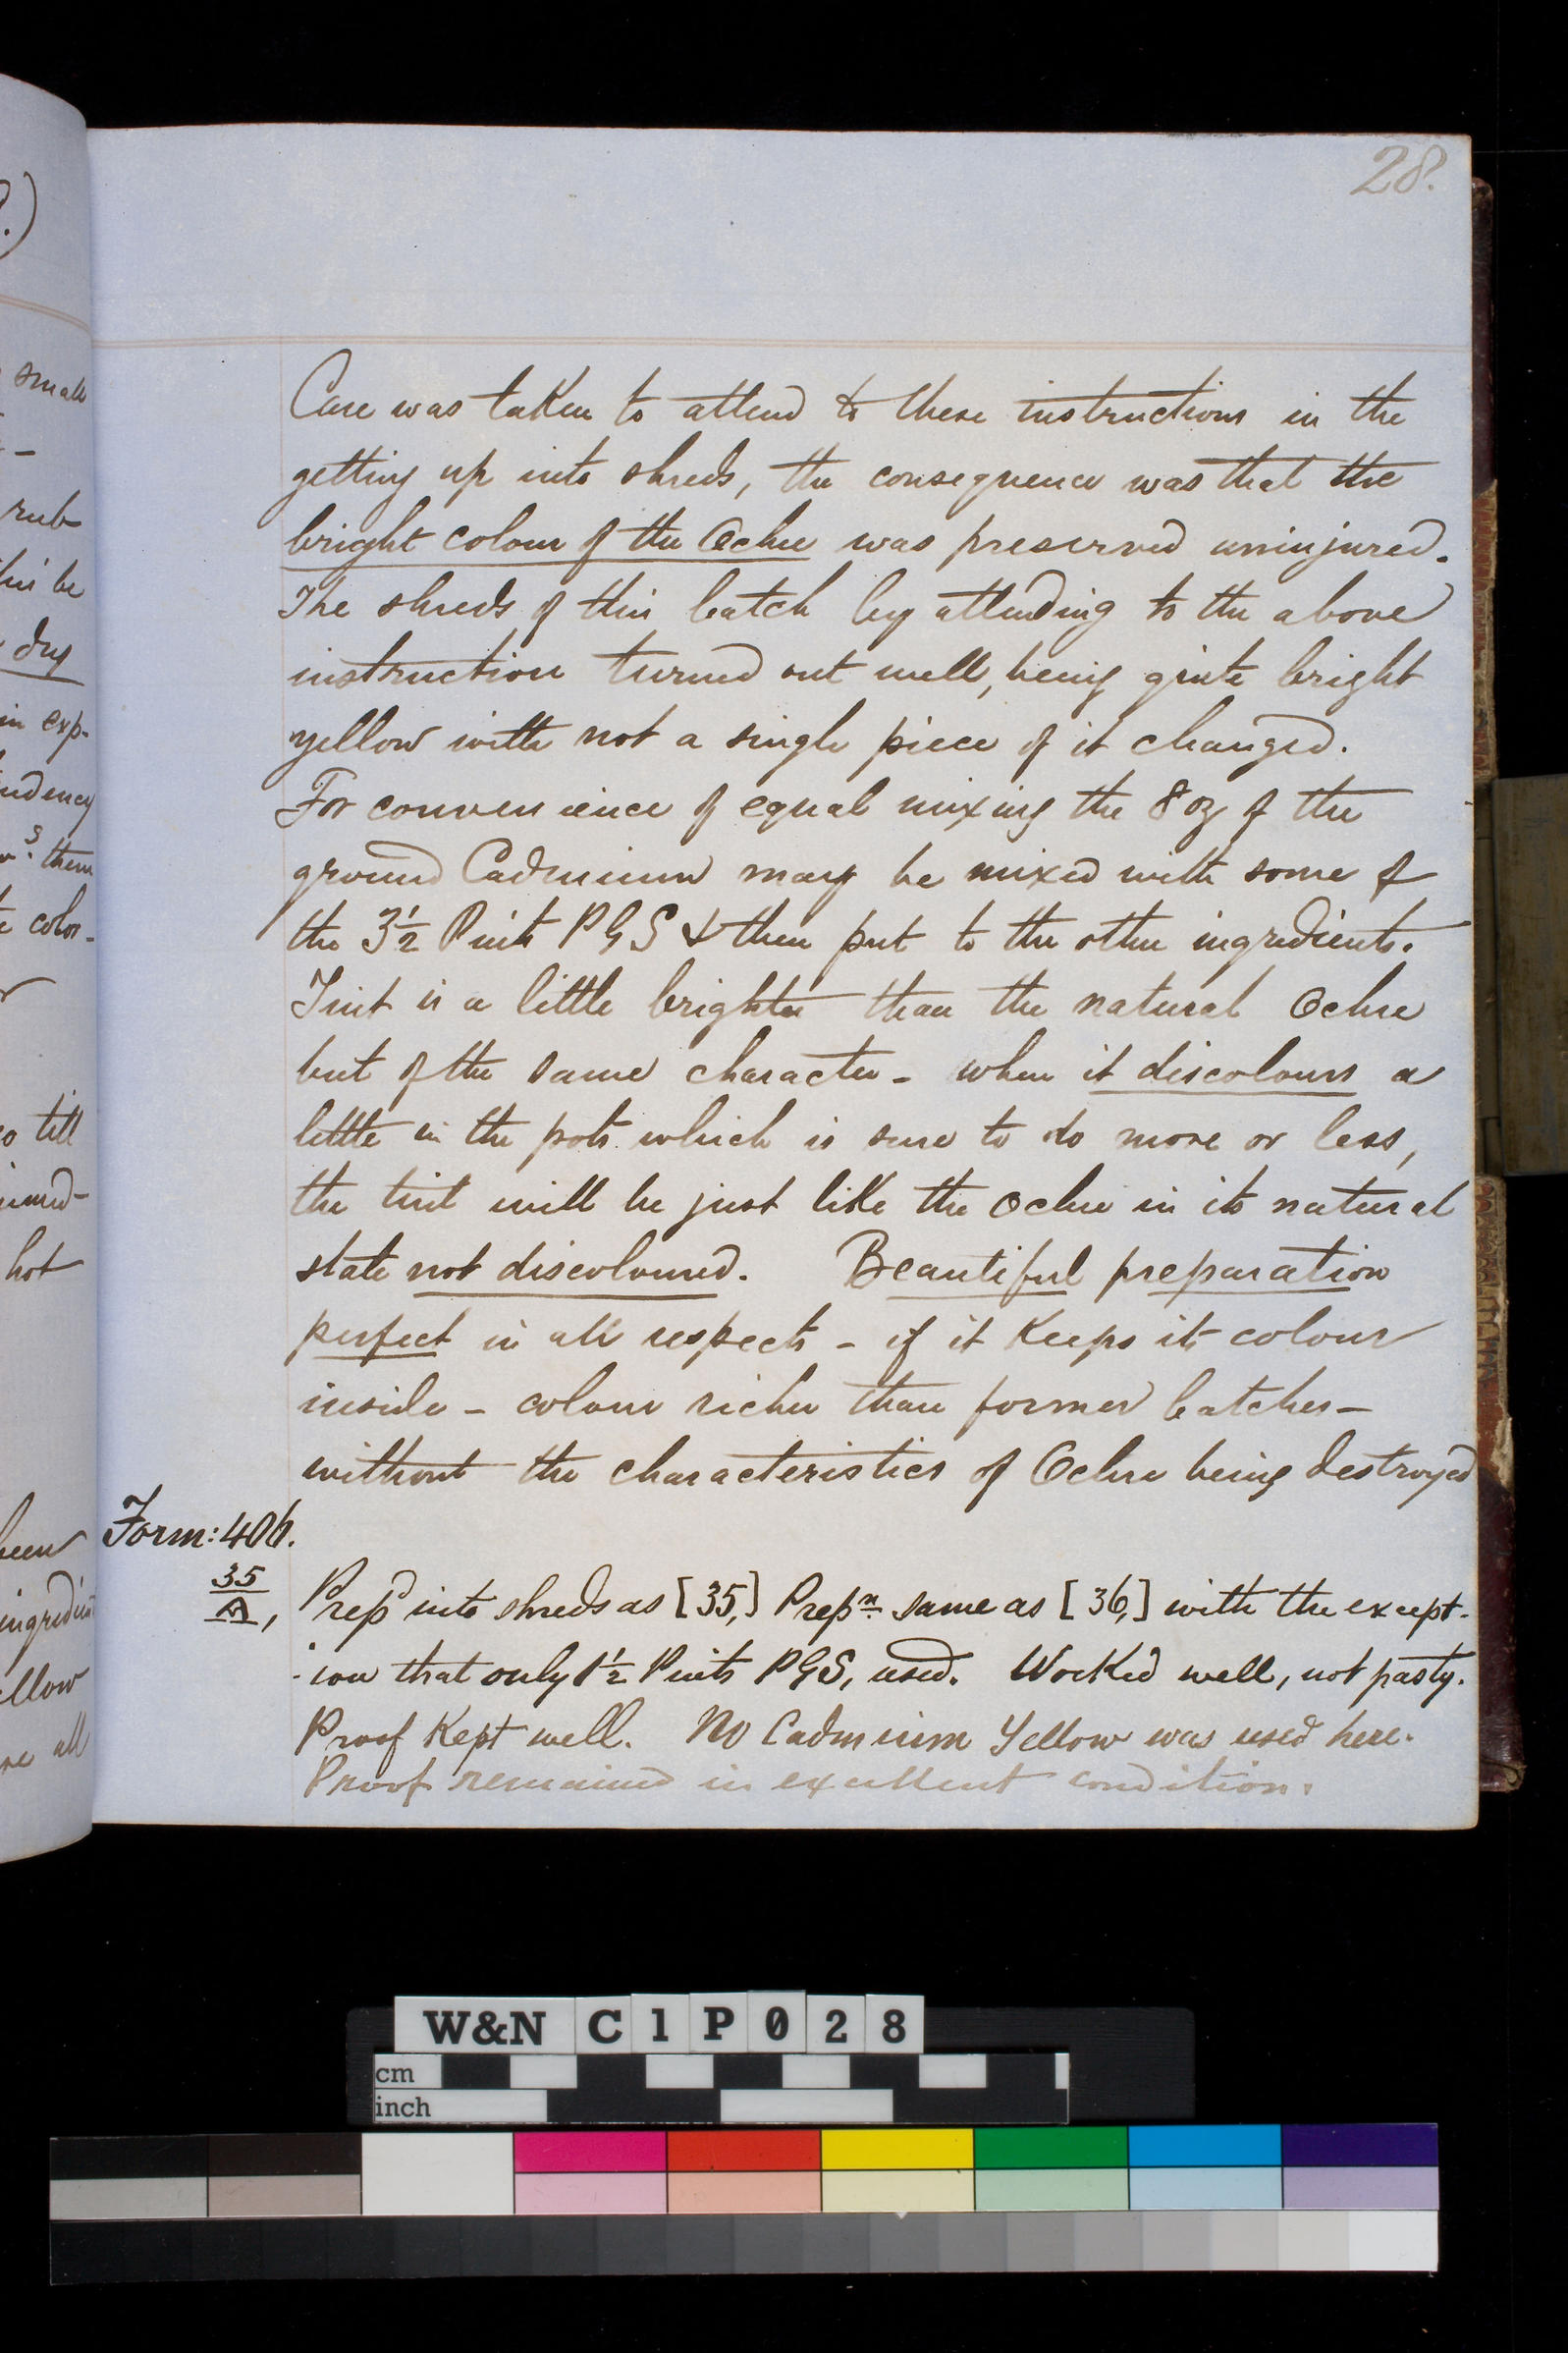 28.
Care was taken to attend to these instructions in the
getting up into shreds, the consequence was that the
bright colour of the Ochre was preserved uninjured.
The shreds of this batch by attending to the above
instruction turned out well, being quite bright
yellow with not a single piece of it changed.
For convenience of equal mixing the 8 oz of the
ground Cadmium may be mixed with some of
the 3½ Pints P G S & then put to the other ingredients.
Tint is a little brighter than the natural Ochre
but of the same character - when it discolours a
little in the pots which is sure to do more or less,
the tint will be just like the Ochre in its natural
state not discoloured. Beautiful preparation
perfect in all respects - if it Keeps its colour
inside - colour richer than former batches -
without the characteristics of Ochre being destroyed
Form: 406.
35
Prepd into shreds as [35,] Prepn same as [36,] with the except-
-ion that only 1½ Pints PGS, used. Worked well, not pasty.
Proof Kept well. No Cadmium Yellow was used here.
Proof remained in excellent condition.
small
rub
this be
dry
in exp-
s them
color-
till
hot
been
W&N C1P028
cm
inch